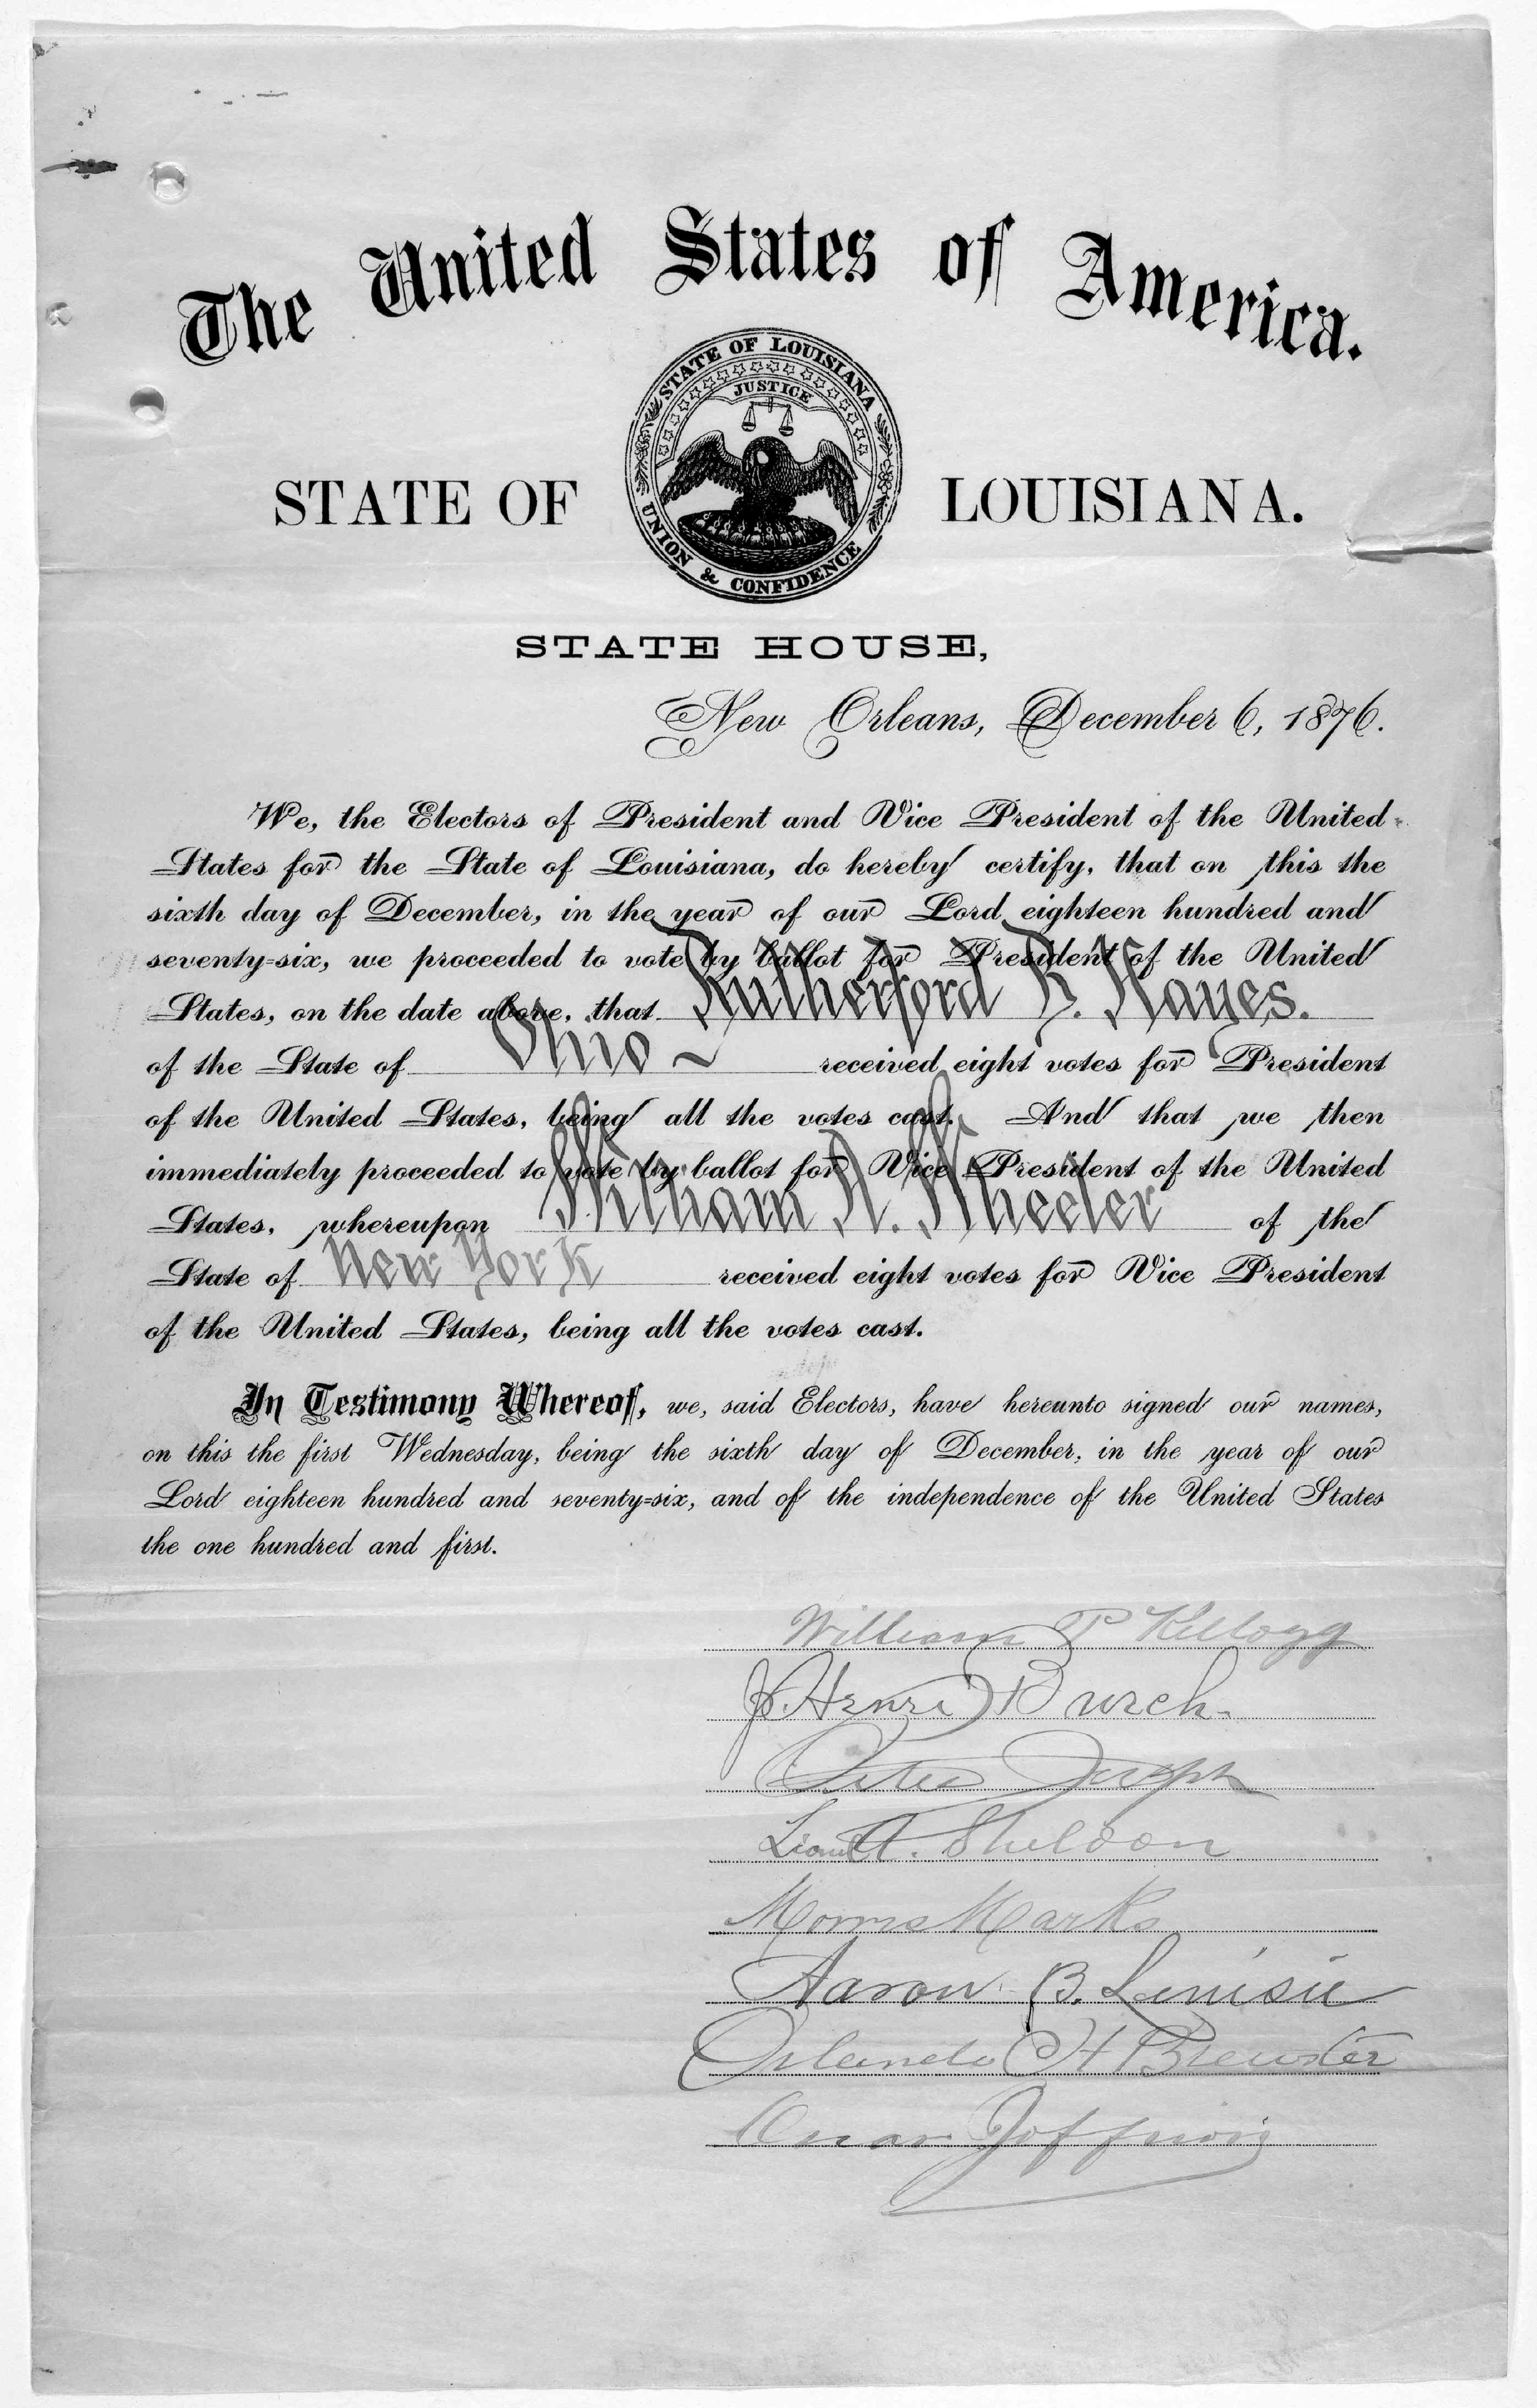 The United States of America.
STATE OF LOUISIANA
JUSTICE
UNION & CONFIDENCE
STATE OF LOUISIANA.
STATE HOUSE,
New Orleans, December 6, 1876.
We, the Electors of President and Vice President of the United
States for the State of Louisiana, do hereby certify, that on this the
sixth day of December, in the year of our Lord eighteen hundred and
seventy=six, we proceeded to vote by ballot for President of the United
States, on the date above, that Rutherford B. Hayes.
of the State of Ohio ~ received eight votes for President
of the United States, being all the votes cast. And that we then
immediately proceeded to vote by ballot for Vice President of the United
States, whereupon William A. Wheeler of the
State of New York received eight votes for Vice President
of the United States, being all the votes cast.
In Testimony Whereof, we, said Electors, have hereunto signed our names,
on this the first Wednesday, being the sixth day of December, in the year of our
Lord eighteen hundred and seventy=six, and of the independence of the United States
the one hundred and first.
William P Kellogg
J. Henri Burch.
Peter Joseph
Lionel A. Sheldon
Morris Marks
Aaron B. Levisee
Orlando H Brewster
Oscar Joffrion